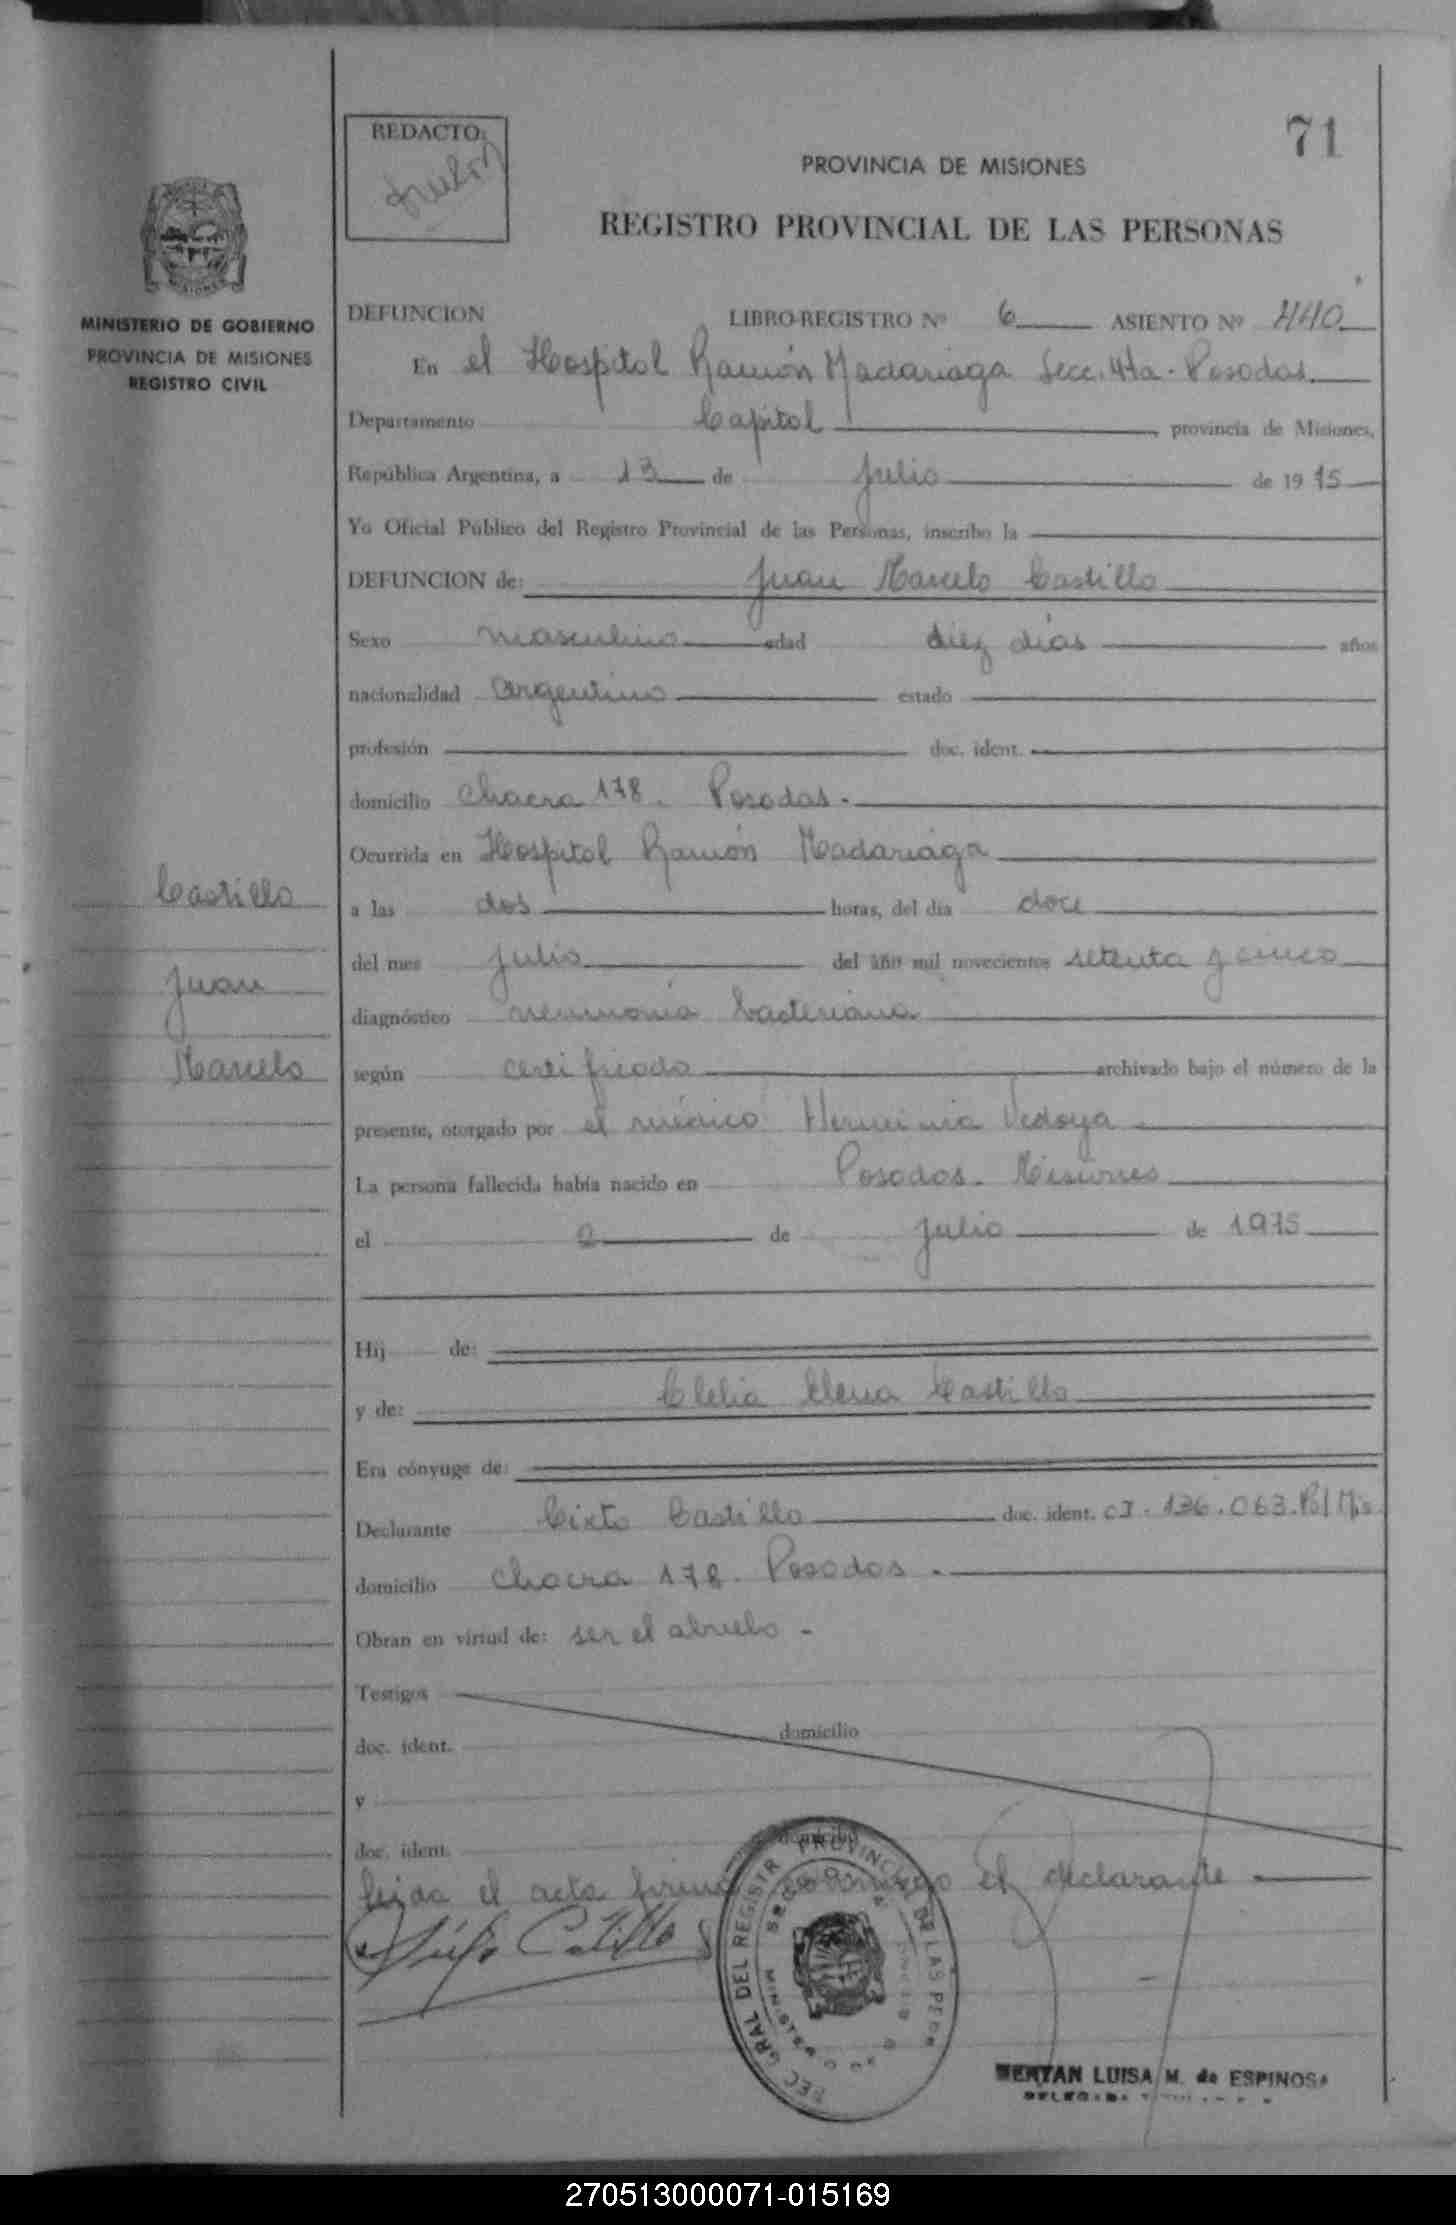 71
REDACTO:
PROVINCIA DE MISIONES
REGISTRO PROVINCIAL DE LAS PERSONAS
MINISTERIO DE GOBIERNO
PROVINCIA DE MISIONES
REGISTRO CIVIL
DEFUNCION LIBRO-REGISTRO Nº 6 ASIENTO Nº 440
En el Hospital Ramón Madariaga Secc. 4ta - Posadas
Departamento Capital provincia de Misiones,
República Argentina, a 13 de Julio de 1975
Yo Oficial Público del Registro Provincial de las Personas, inscribo la
DEFUNCION de: Juan Marcelo Castillo
Sexo masculino edad diez días años
nacionalidad argentino estado
profesión doc. ident.
domicilio Chacra 178. Posadas.
Ocurrida en Hospital Ramón Madariaga
Castillo
a las dos horas, del día doce
del mes julio del año mil novecientos setenta y cinco
Juan
diagnóstico neumonía bacteriana
Marcelo
según certificado archivado bajo el número de la
presente, otorgado por el médico Herminia Vedoya
La persona fallecida había nacido en Posadas. Misiones
el 2 de Julio de 1975
Hij de:
y de: Clelia Elena Castillo
Era cónyuge de:
Declarante Cixto Castillo doc. ident. CI. 136.063. Pol Mis
domicilio Chacra 178. Posadas.
Obran en virtud de: ser el abuelo -
Testigos
doc. ident. domicilio
y
doc. ident. domicilio
leída el acta firma conmigo el declarante
Castillo
MINISTERIO DE
LUISA M. de ESPINOSA
270513000071-015169